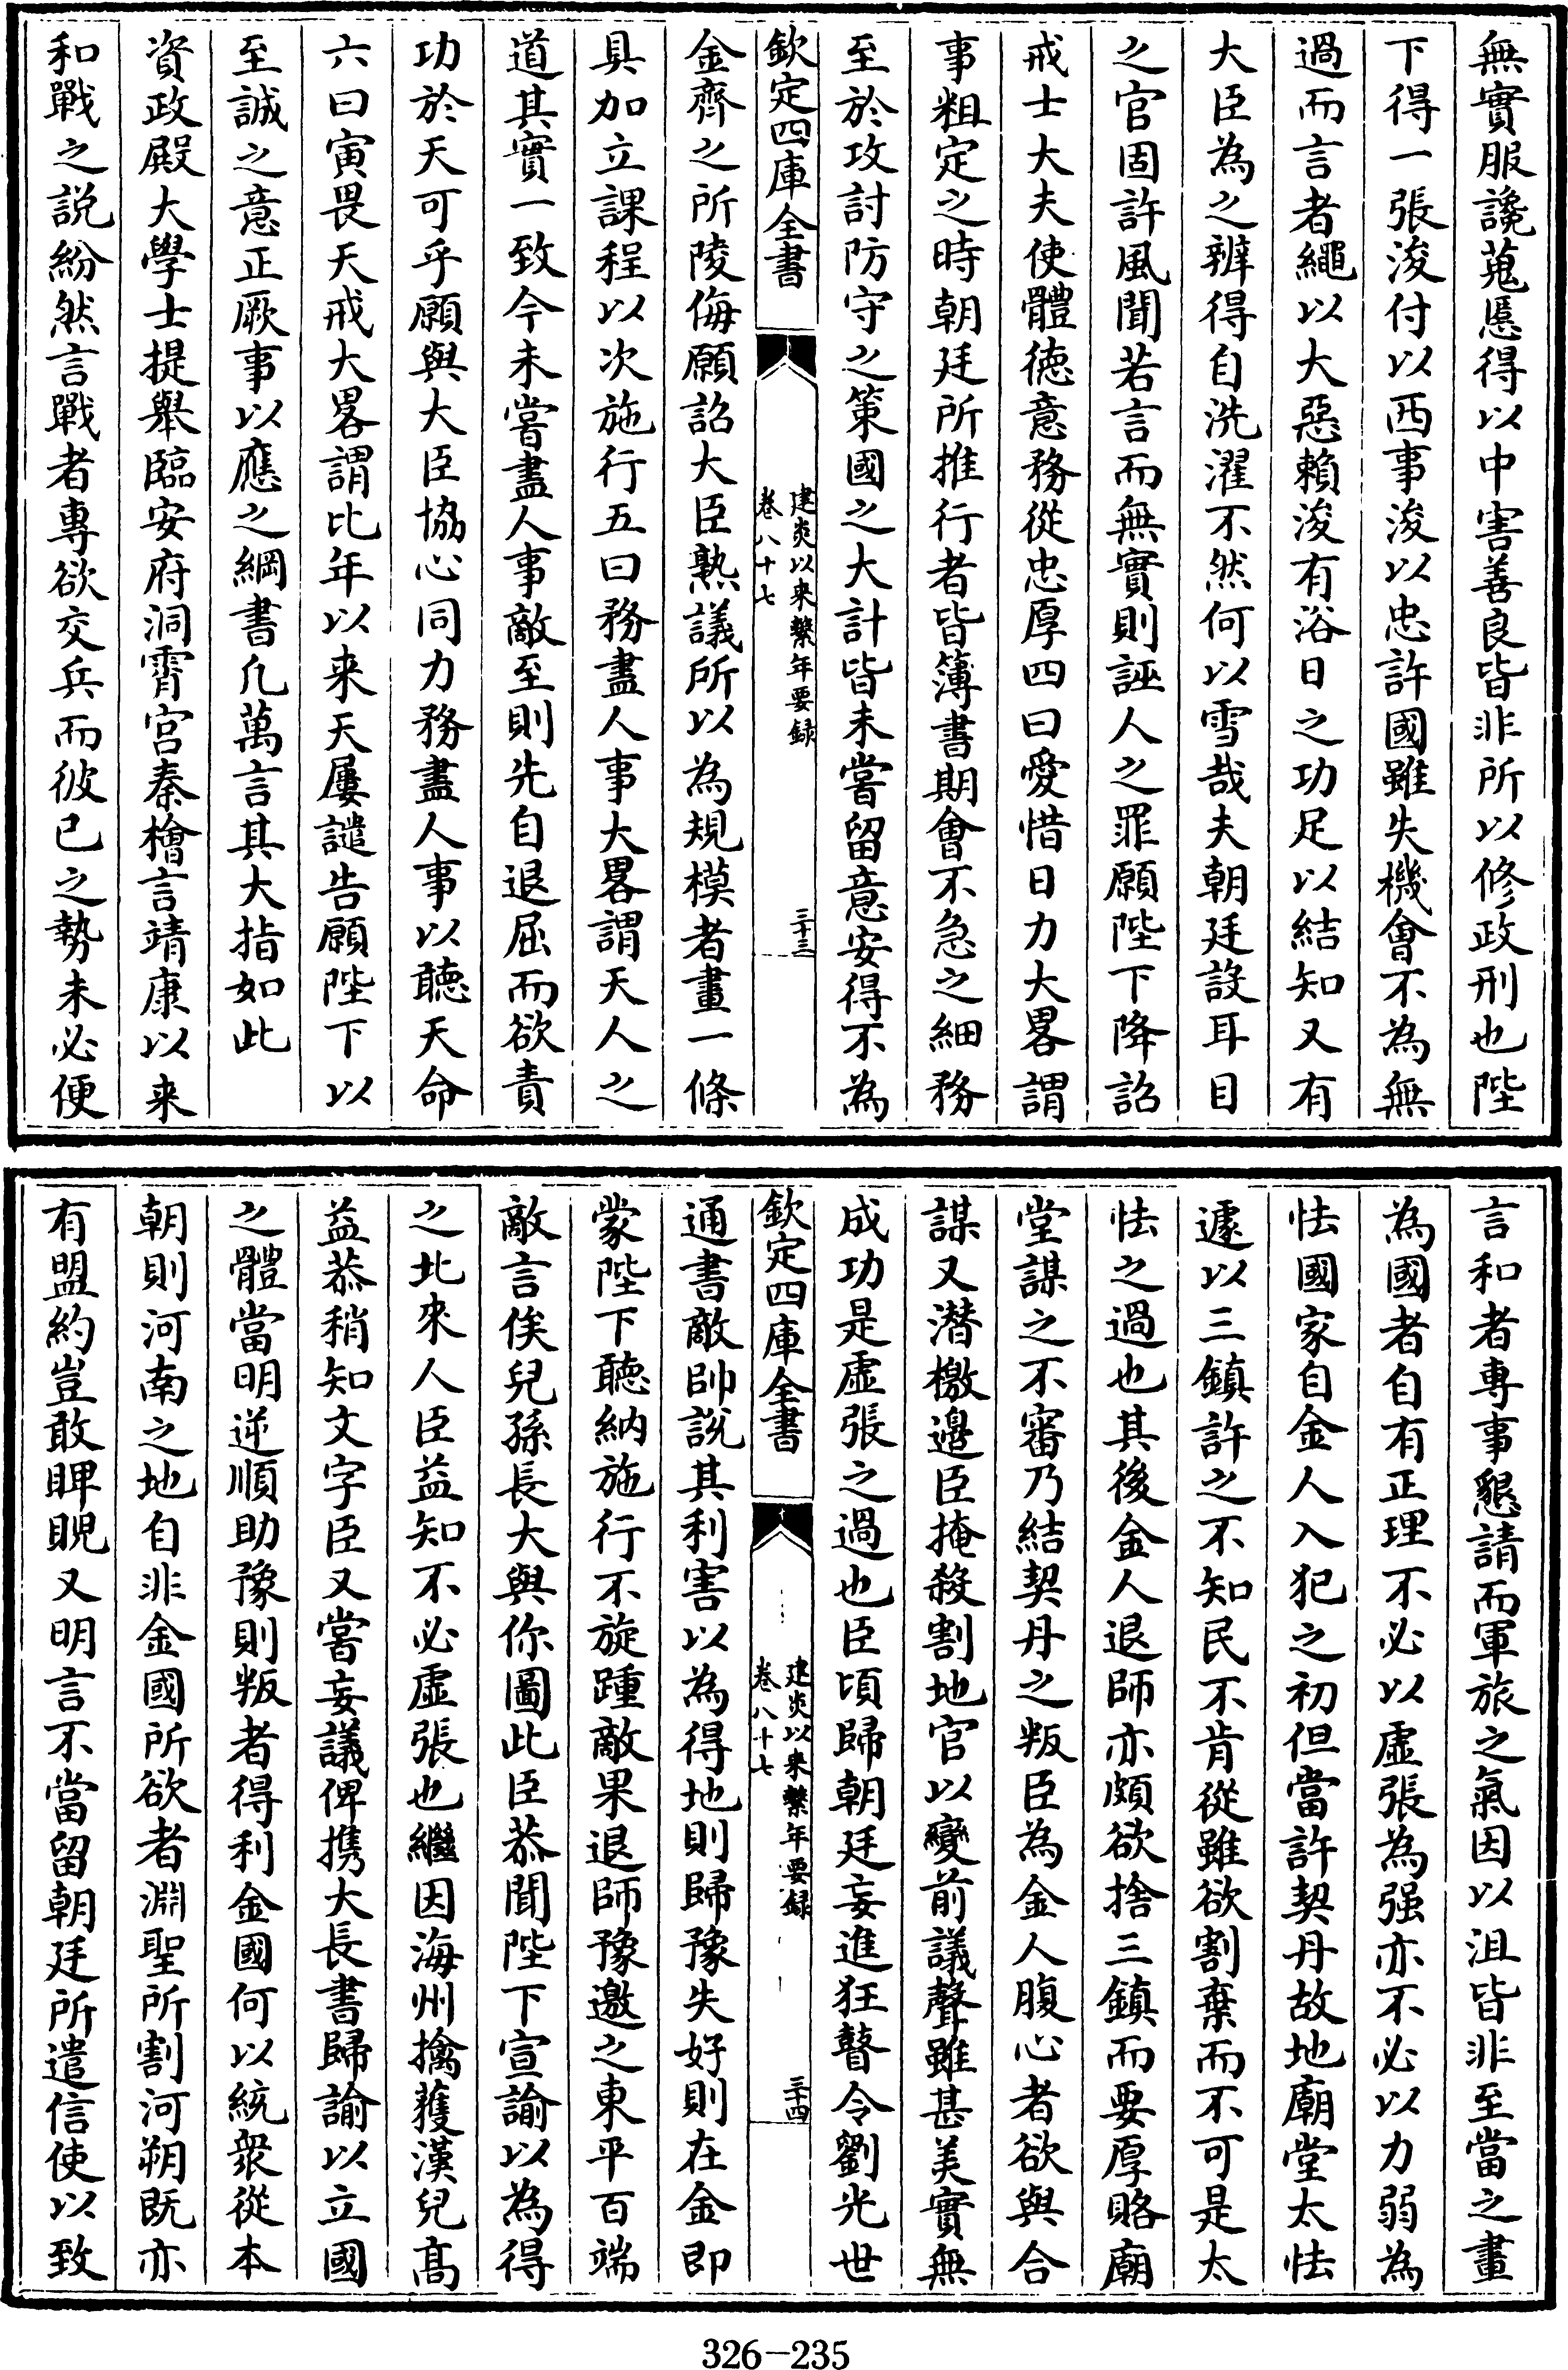 無實服讒蒐慝得以中害善良皆非所以修政刑也陛
下得一張浚付以西事浚以忠許國雖失機會不為無
過而言者繩以大惡賴浚有浴日之功足以結知又有
大臣為之辨得自洗濯不然何以雪哉夫朝廷設耳目
之官固許風聞若言而無實則誣人之罪願陛下降詔
戒士大夫使體徳意務從忠厚四曰愛惜日力大畧謂
事粗定之時朝廷所推行者皆簿書期會不急之細務
至於攻討防守之策國之大計皆未嘗留意安得不為
欽定四庫全書
建炎以來繫年要録
卷八十七
三十三
金齊之所陵侮願詔大臣熟議所以為規模者畫一條
具加立課程以次施行五曰務盡人事大畧謂天人之
道其實一致今未嘗盡人事敵至則先自退屈而欲責
功於天可乎願與大臣協心同力務盡人事以聽天命
六曰寅畏天戒大畧謂比年以来天屢譴告願陛下以
至誠之意正厥事以應之綱書凡萬言其大指如此
資政殿大學士提舉臨安府洞霄宮秦檜言靖康以来
和戰之説紛然言戰者專欲交兵而彼已之勢未必便
言和者專事懇請而軍旅之氣因以沮皆非至當之畫
為國者自有正理不必以虚張為强亦不必以力弱為
怯國家自金人入犯之初但當許契丹故地廟堂太怯
遽以三鎮許之不知民不肯從雖欲割棄而不可是太
怯之過也其後金人退師亦頗欲捨三鎮而要厚賂廟
堂謀之不審乃結契丹之叛臣為金人腹心者欲與合
謀又潛檄邉臣掩殺割地官以變前議聲雖甚美實無
成功是虚張之過也臣頃歸朝廷妄進狂瞽令劉光世
欽定四庫全書
建炎以来繫年要録
卷八十七
三十四
通書敵帥説其利害以為得地則歸豫失好則在金即
蒙陛下聽納施行不旋踵敵果退師豫邀之東平百端
敵言俟兒孫長大與你圖此臣恭聞陛下宣諭以為得
之北來人臣益知不必虚張也繼因海州擒獲漢兒髙
益恭稍知文字臣又嘗妄議俾携大長書歸諭以立國
之體當明逆順助豫則叛者得利金國何以統衆從本
朝則河南之地自非金國所欲者淵聖所割河朔既亦
有盟約豈敢睥睨又明言不當留朝廷所遣信使以致
326-235